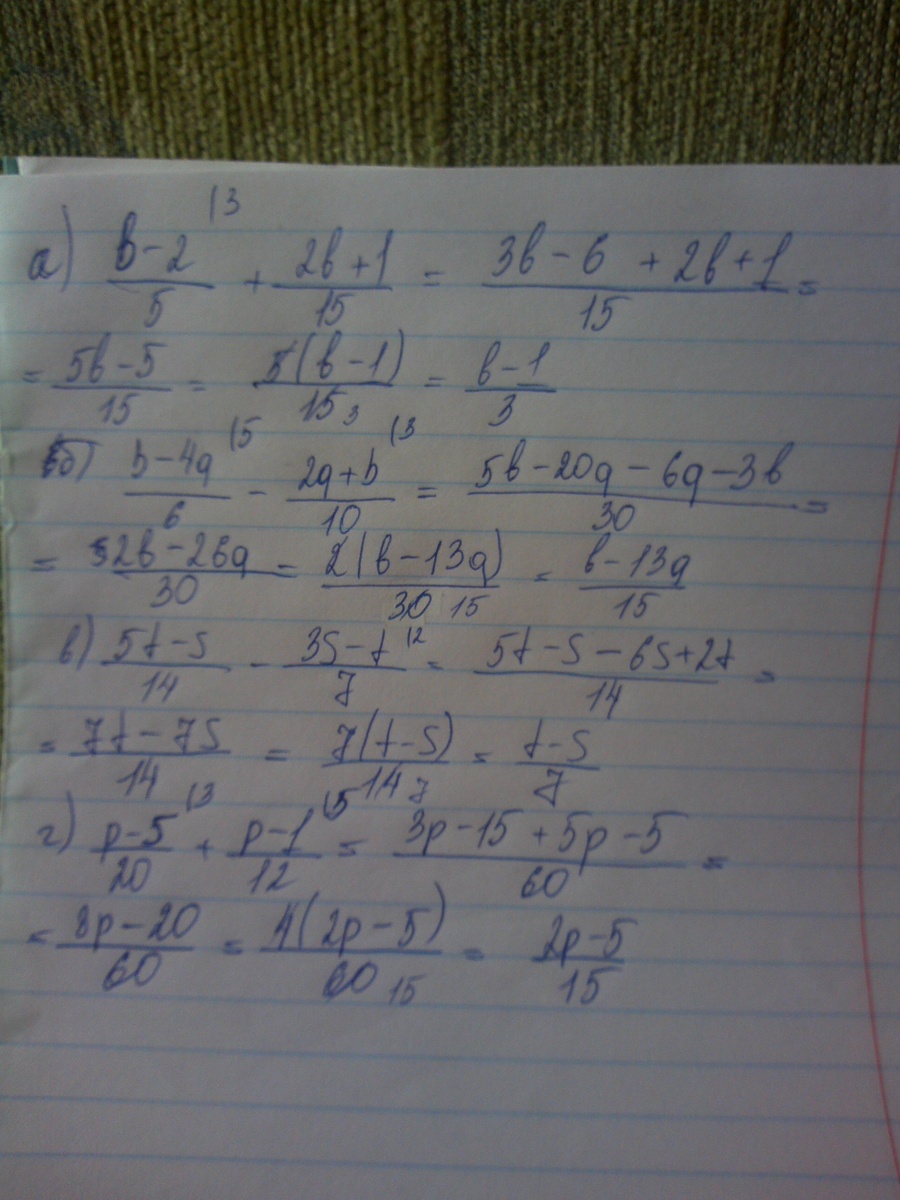 а) (b-2)/5 |3 + (2b+1)/15 = (3b-6+2b+1)/15 =
= (5b-5)/15 = 5(b-1)/15 3 = (b-1)/3
б) (b-4q)/6 |5 - (2q+b)/10 |3 = (5b-20q-6q-3b)/30 =
= (2b-26q)/30 = 2(b-13q)/30 15 = (b-13q)/15
в) (5t-s)/14 - (3s-t)/7 |2 = (5t-s-6s+2t)/14 =
= (7t-7s)/14 = 7(t-s)/14 7 = (t-s)/7
г) (p-5)/20 |3 + (p-1)/12 |5 = (3p-15+5p-5)/60 =
= (8p-20)/60 = 4(2p-5)/60 15 = (2p-5)/15